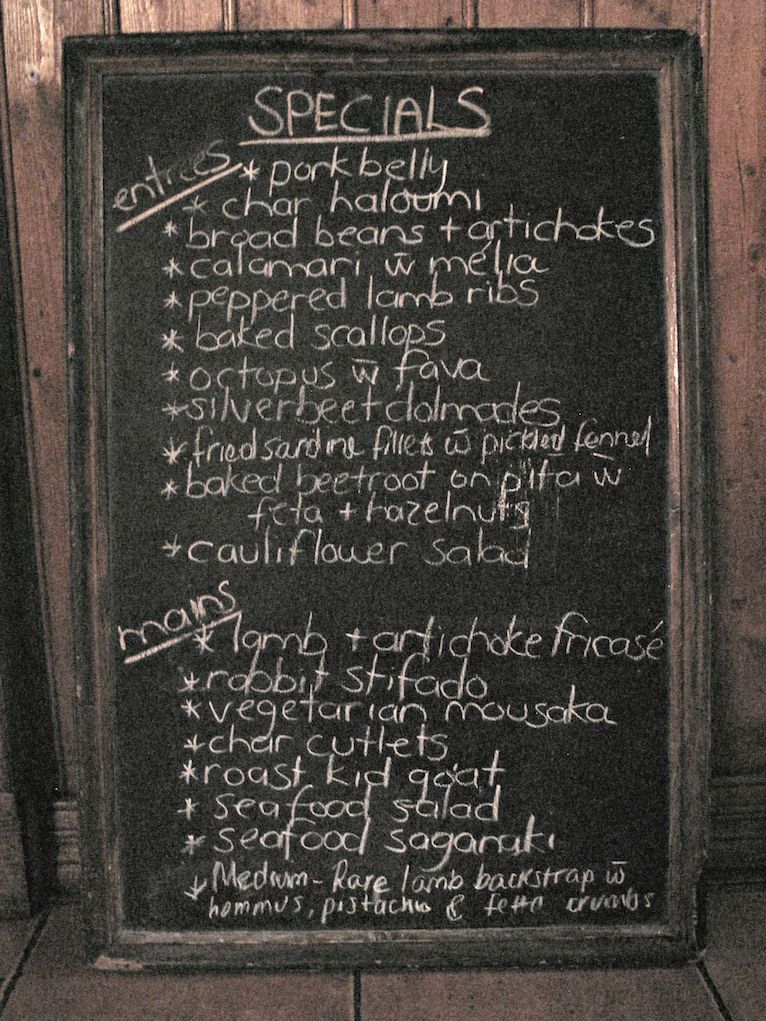 SPECIALS
entrees
* pork belly
* char haloumi
* broad beans + artichokes
* calamari w̄ mélia
* peppered lamb ribs
* baked scallops
* octopus w̄ fava
* silverbeet dolmades
* fried sardine fillets w̄ pickled fennel
* baked beetroot on pita w̄
feta + hazelnuts
* cauliflower salad
mains
* lamb + artichoke fricasé
* rabbit stifado
* vegetarian mousaka
* char cutlets
* roast kid goat
* seafood salad
* seafood saganaki
* Medium-Rare lamb backstrap w̄
hommus, pistachio & fetta crumbs